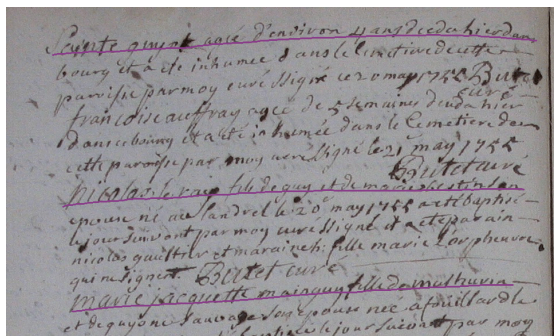 agé d'environ 4 ans deceda hier dans
bourg et a ete inhumee dans le cimetiere de cette
paroisse par moy curé ssigné ce 20 may 1755 Butet
curé
francoise auffray agee de 5 semaines deceda hier
dans ce bourg et a eté inhumée dans le Cemetiere de
cette paroisse par moy curé ssigné le 21 may 1755
Butet curé
nicolas le roux fils de guy et de marie
epouse né au landrel le 20 may 1755 a eté baptisé
le jour suivant par moy curé ssigné et a eté parain
nicolas gaultier et maraine h. fille marie l'orpheuvre
qui ne signent. Butet curé
marie jacquette mainguy fille de mathurin
et de guyonne Sauvage son epouse née a
le jour suivant par moy